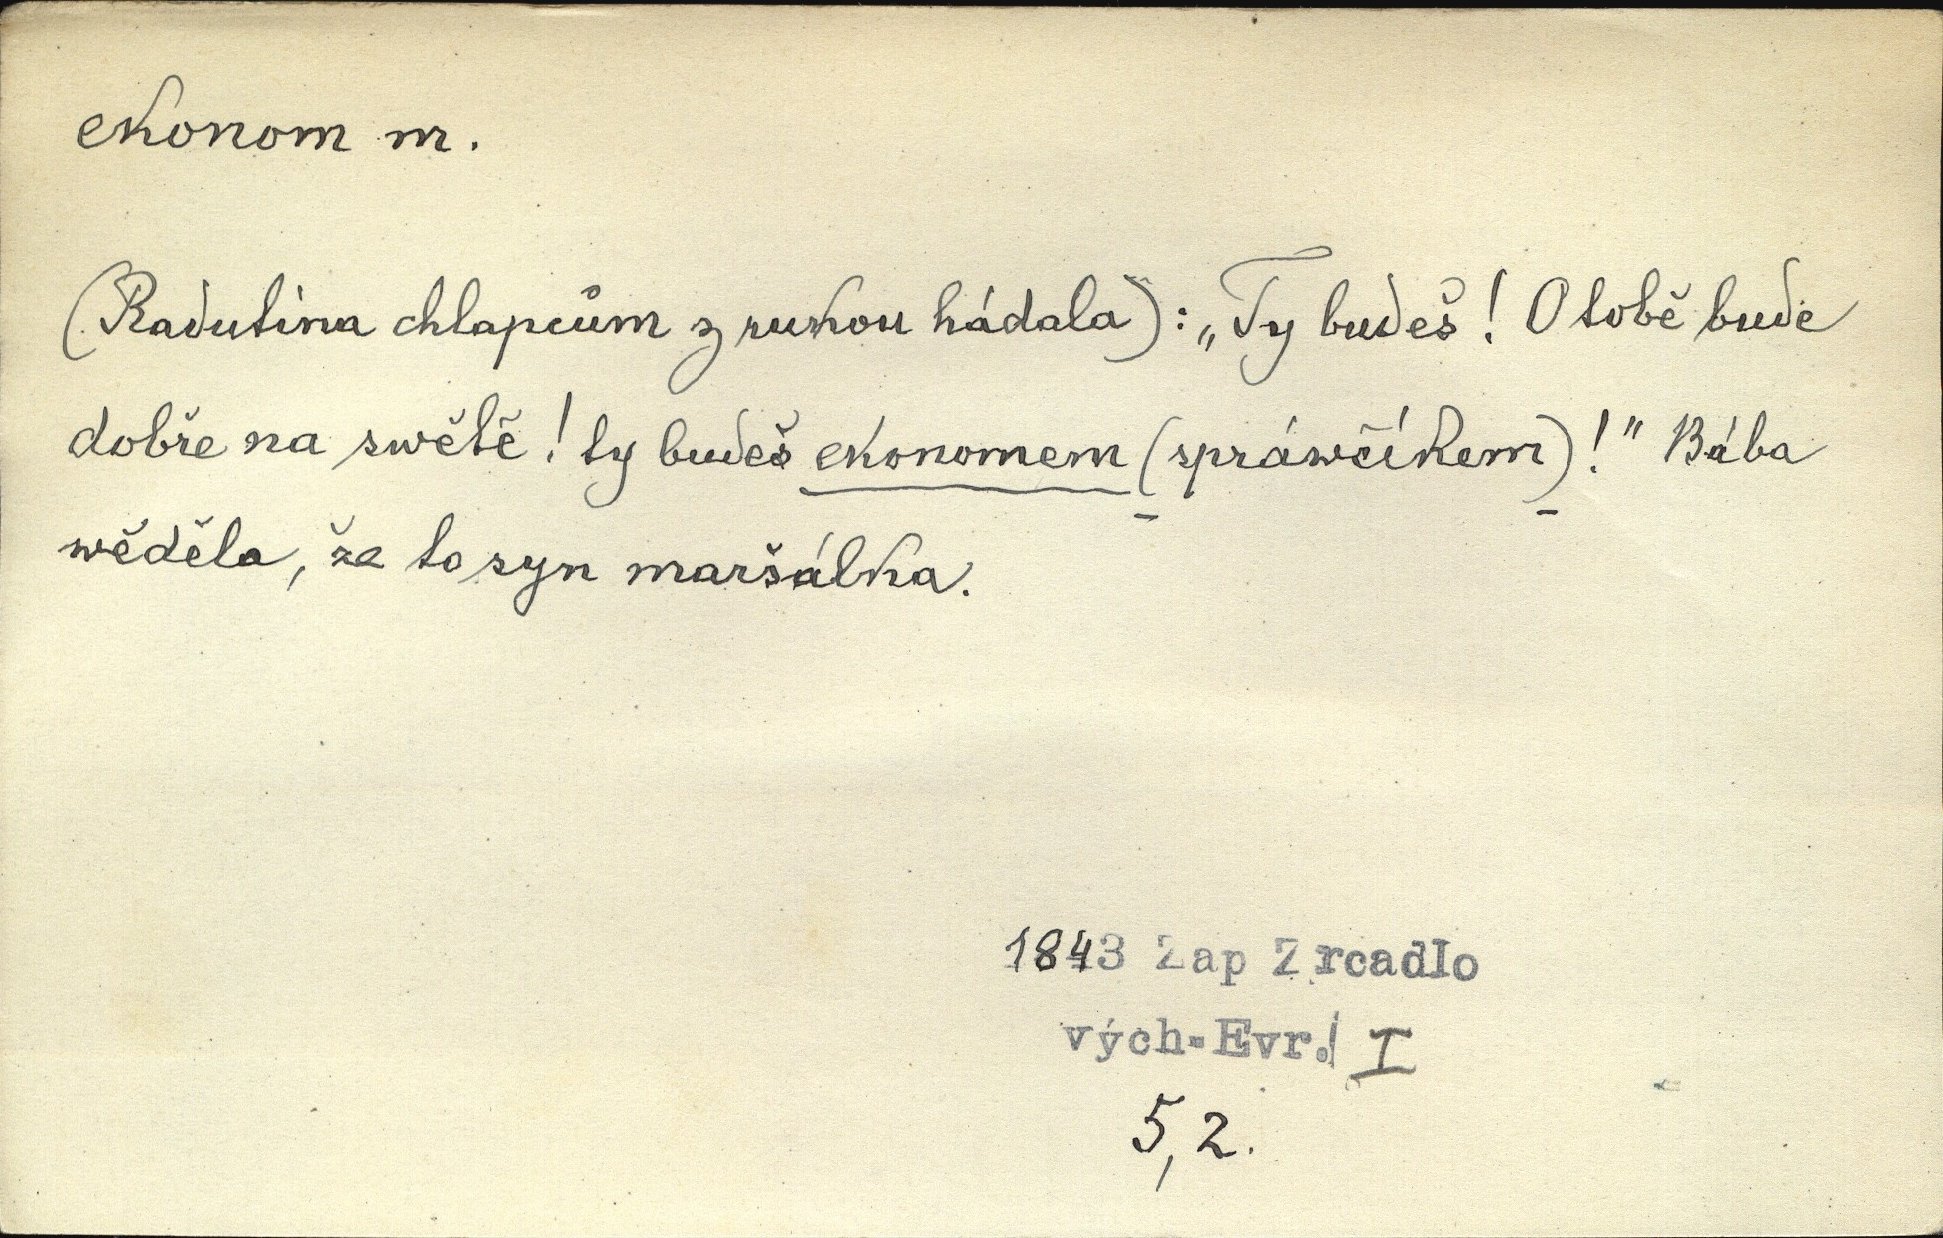 ekonom m.
(Radutina chlapcům z rukou hádala): „Ty budeš! O tobě bude
dobře na swětě! ty budeš ekonomem (spráwčíkem)!" Bába
wěděla, že to syn maršálka.
1843 Zap Zrcadlo
vých. Evr. I
5,2.